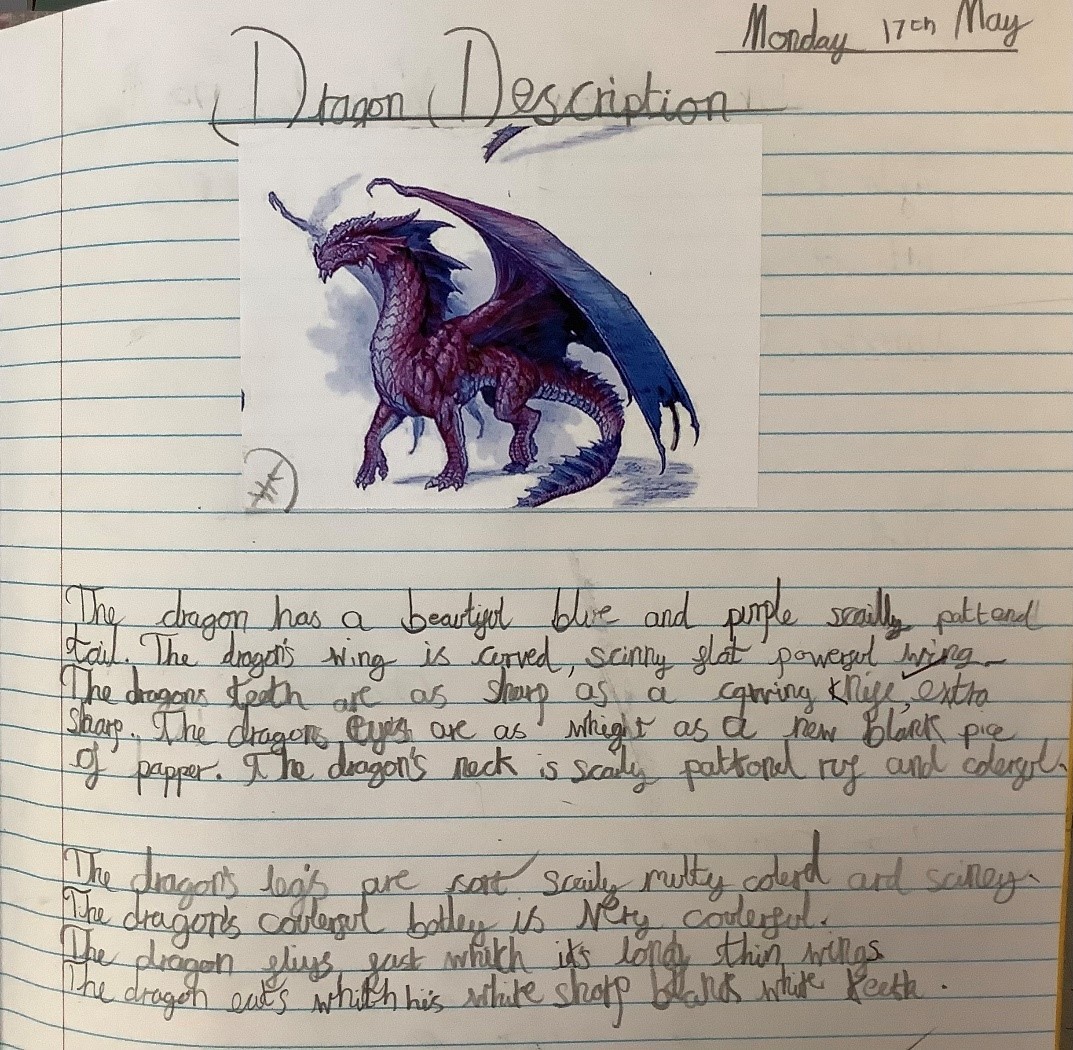 Monday 17th May
Dragon Description
The dragon has a beautiful blue and purple scailly pattand
tail. The dragon's wing is curved, scinny flat powerful wing.
The dragons teeth are as sharp as a carving knife, extra
sharp. The dragons eyes are as whight as a new blank pice
of papper. The dragon's neck is scaily pattond ruf and colerful.
The dragon's leg's are sort scaily multy colerd and sciney.
The dragon's coulerful bodey is very coulerful.
The dragon fliys fast whith it's long thin wings
The dragon eat's whith his white sharp blank white teeth.